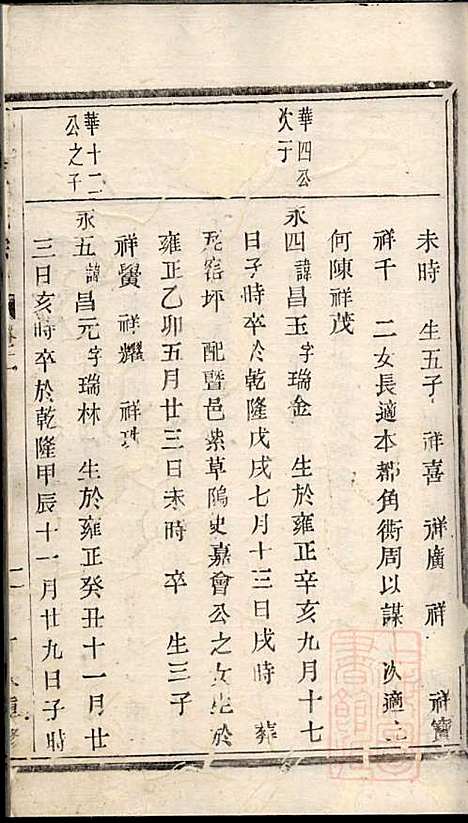 未時 生五子 祥喜 祥廣 祥 祥寶
祥千 二女長適本都角街周以謀 次適上
何陳祥茂
華四公次子
永四諱昌玉字瑞金 生於雍正辛亥九月十七
日子時卒於乾隆戊戌七月十三日戌時 葬
窰坪 配暨邑紫草隖史嘉會公之女生於
雍正乙卯五月廿三日未時 卒 生三子
祥鬢 祥耀 祥珠
華十二公之子
永五諱昌元字瑞林 生於雍正癸丑十一月廿
三日亥時卒於乾隆甲辰十一月廿九日子時